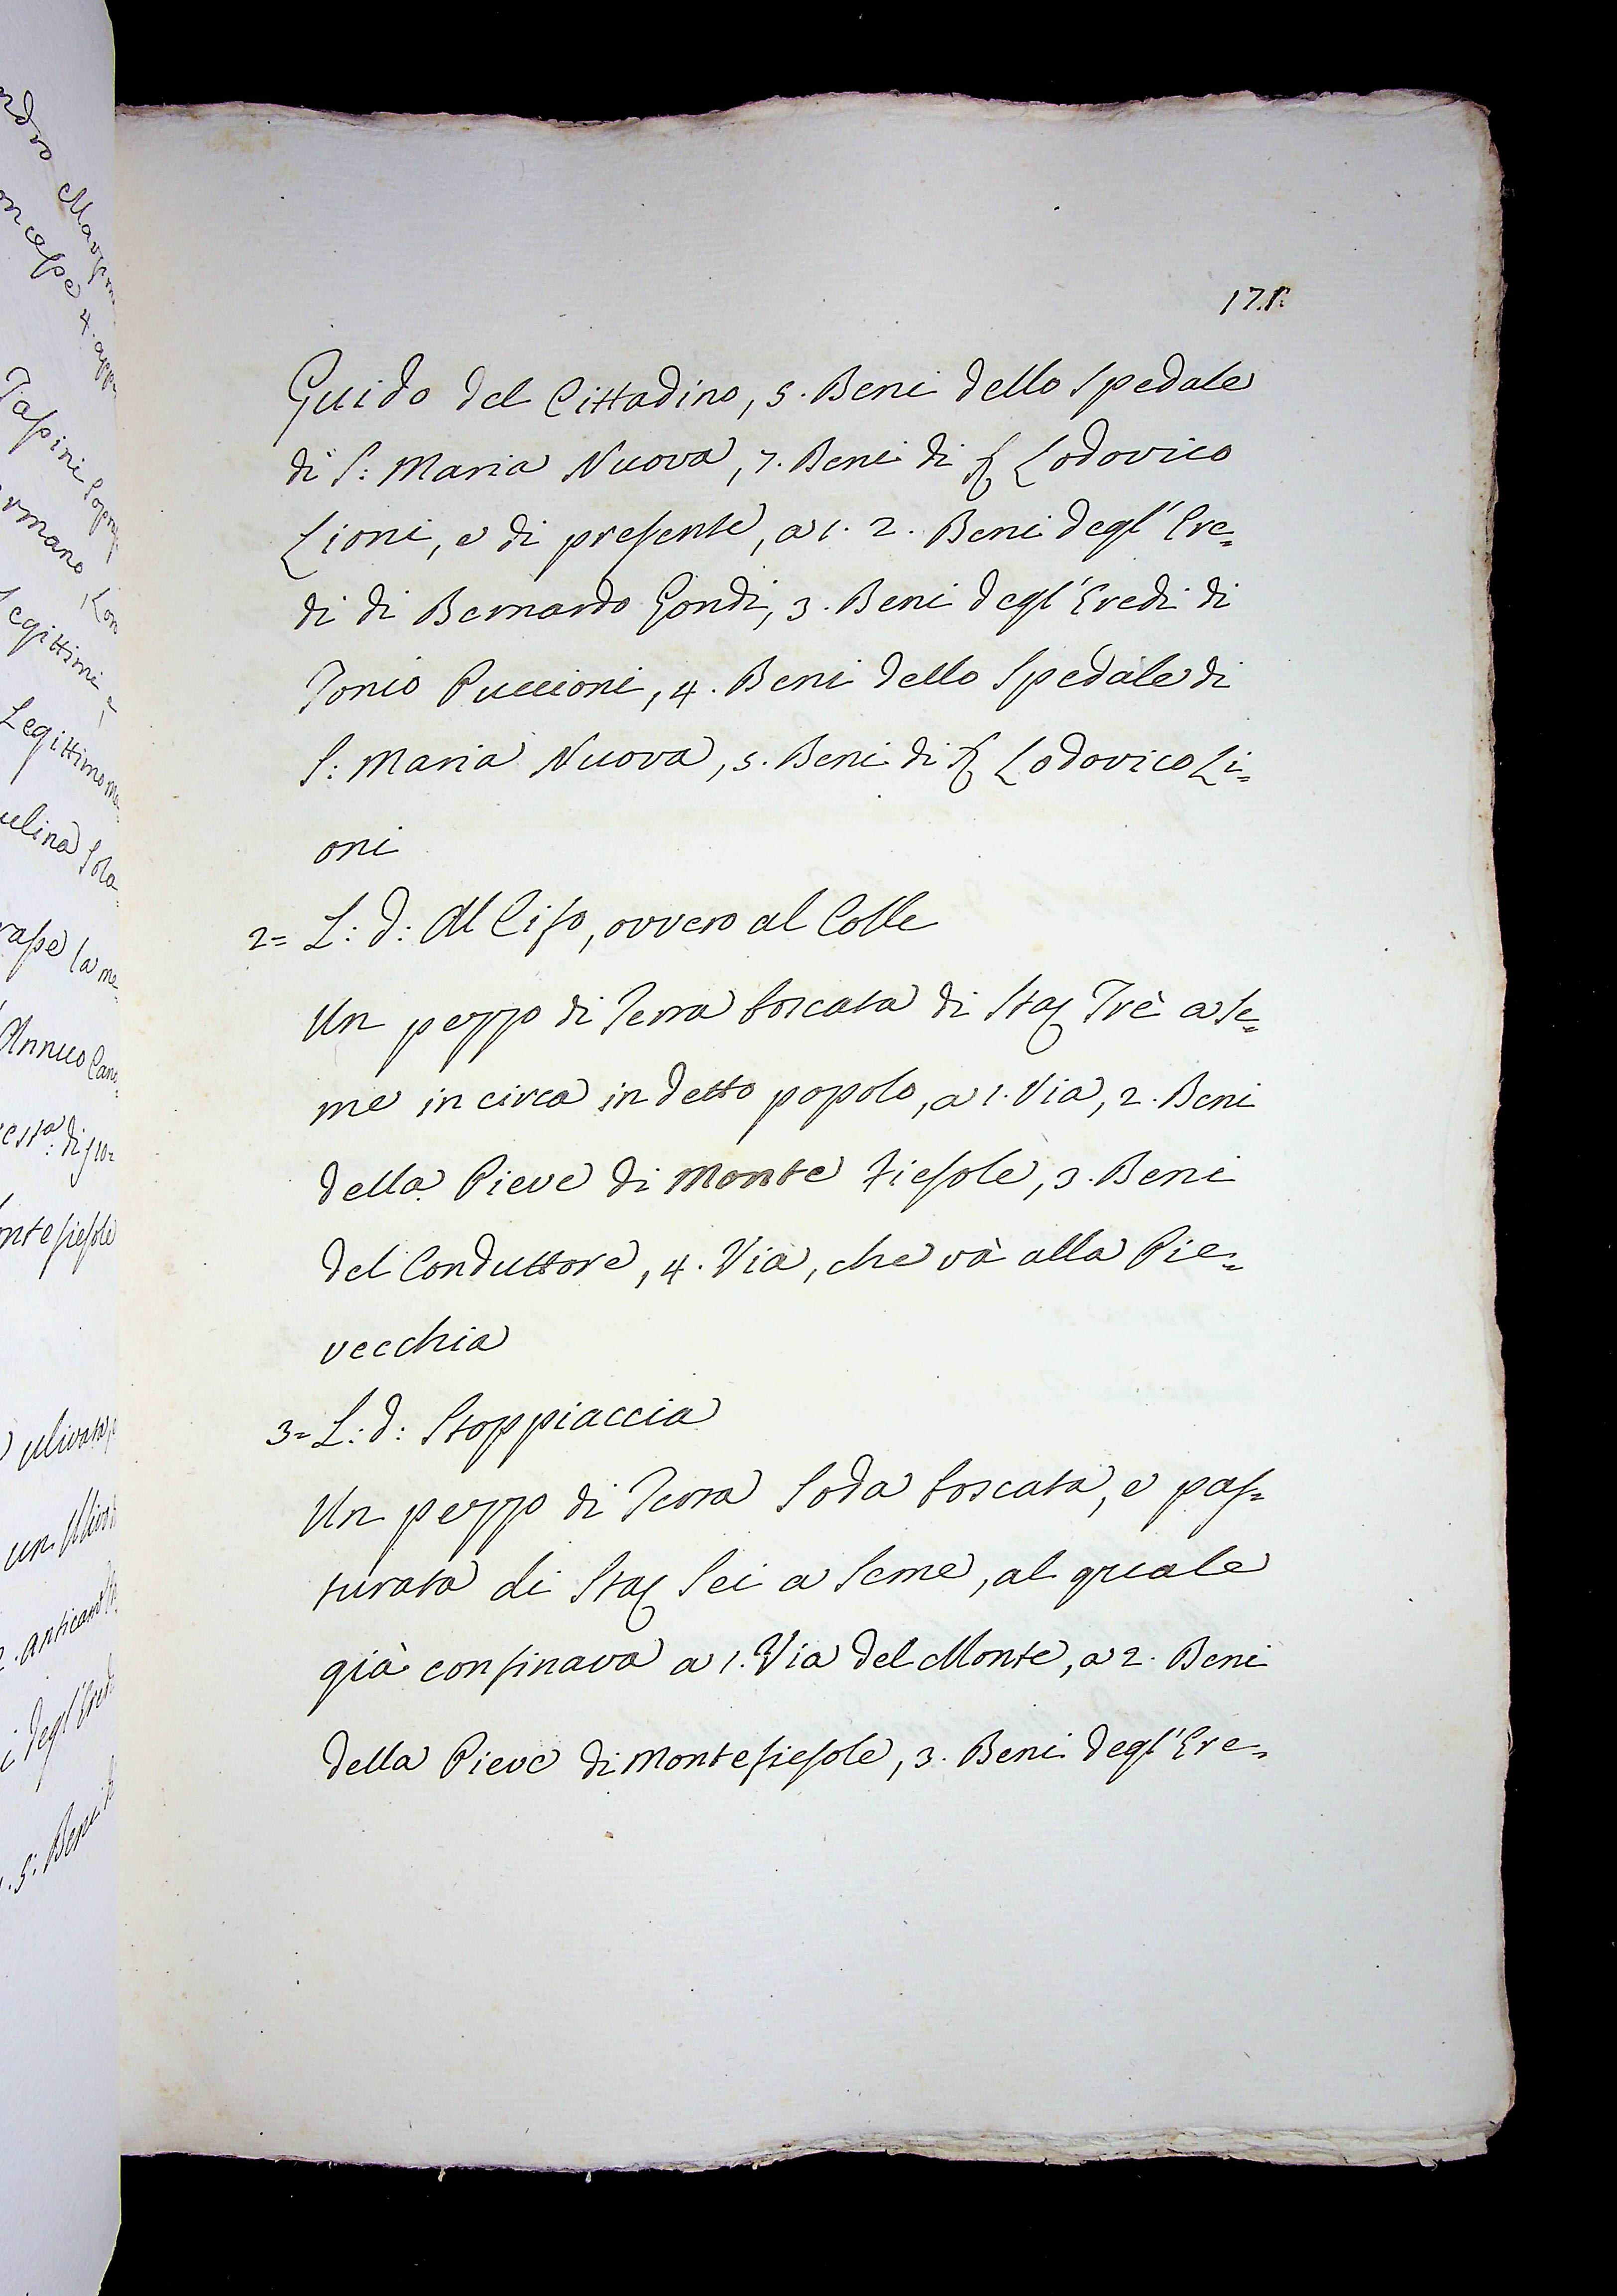 17.r.
Guido del Cittadino, 5. Beni dello Spedale
di S: Maria Nuova, 7. Beni di Lodovico
Lioni, e di presente, a 1. 2. Beni degl'Ere=
di di Bernardo Gondi, 3. Beni degl'Eredi di
Tonio Puccioni, 4. Beni dello Spedale di
S: Maria Nuova, 5. Beni di Lodovico Li=
oni
2= L: d: Al Ciso, ovvero al Colle
Un pezzo di Terra boscata di Sta Trè a Se=
me in circa in detto popolo, a 1. Via, 2. Beni
della Pieve di Monte fiesole, 3. Beni
del Conduttore, 4. Via, che và alla Pie=
vecchia
3= L: d: Stoppiaccia
Un pezzo di Terra Soda boscata, e pas=
turata di Sta Sei a Seme, al quale
già confinava a 1. Via del Monte, a 2. Beni
della Pieve di Montefiesole, 3. Beni degl'Ere=